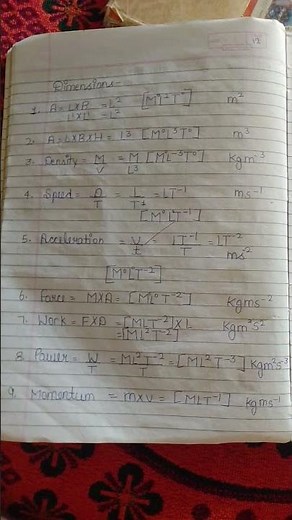 Dimensions-
1. A = L×B = L² [M⁰L²T⁰] m²
L×L = L²
2. A = L×B×H = L3 [M⁰L³T⁰] m³
3. Density = M/V = M/L³ [ML⁻³T⁰] Kgm⁻³
4. Speed = D/T = L/T = LT⁻¹ ms⁻¹
[M⁰LT⁻¹]
5. Acceleration = V/t = LT⁻¹/T = LT⁻² ms⁻²
[M⁰LT⁻²]
6. Force = M×A = [MLT⁻²] Kgms⁻²
7. Work = F×D = [MLT⁻²]×L Kgm²s²
= [ML²T⁻²]
8. Power = W/T = ML²T⁻²/T = [ML²T⁻³] Kgm²s⁻³
9. Momentum = m×v = [MLT⁻¹] kgms⁻¹